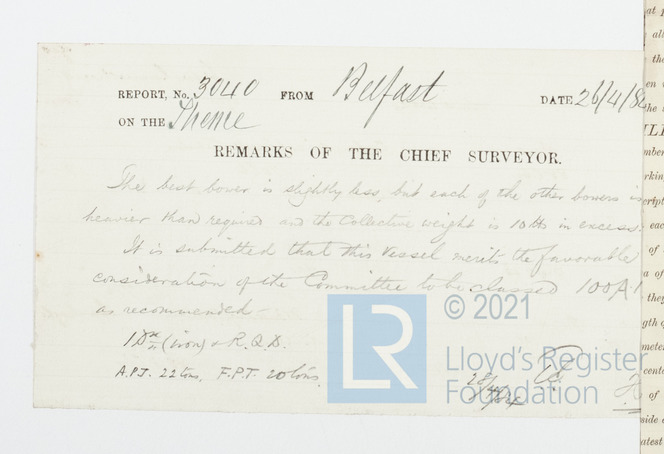 REPORT, No. 3040 FROM Belfast DATE 26/4/84
ON THE
REMARKS OF THE CHIEF SURVEYOR.
The best bower is slightly less, but each of the other bowers is
heavier than required and the Collective weight is 10 lbs in excess.
It is submitted that this vessel merits the favorable
consideration of the Committee to be classed 100A1
as recommended -
1 Dk (iron) & R.Q.D.
A.P.T. 22 tons, F.P.T. 20 tons.
LR
© 2021
Lloyd's Register
Foundation